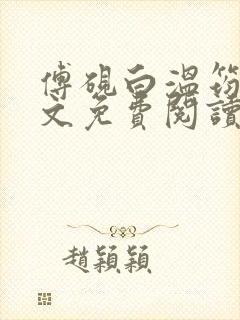 傅硯白溫筠
文免費閱讀
趙穎穎